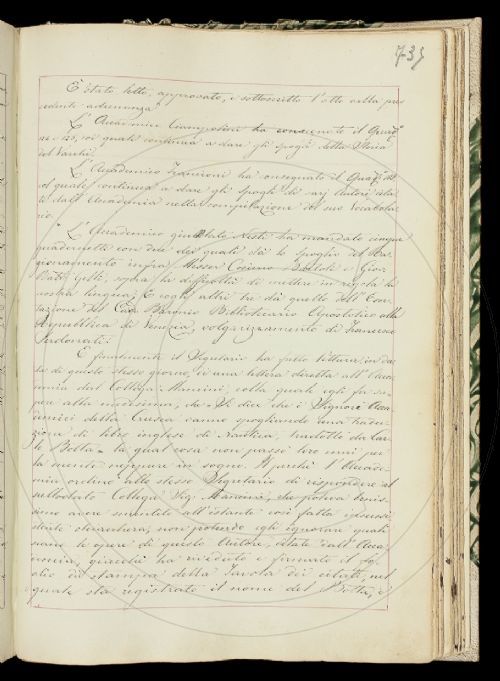 735
E' stato letto, approvato, e sottoscritto l'atto della pre
cedente adunanza.
L'Accademico Ciampolini ha consegnato il Quad.
coi quali continua a dare gli spogli della Storia
del Varchi.
L'Accademico Zannoni ha consegnato il Quad.
col quale continua a dare gli spogli di varj Autori
dall'Accademia nella compilazione del suo Vocabola
rio.
L'Accademico ha mandato cinque
quadernetti con due dei quali dà lo spoglio del Ra
gionamento infra Messer Cosimo Bartoli e Giov.
Batt. Gelli, sopra le difficoltà di mettere in regole la
nostra lingua; E cogli altri tre dà quello dell' Esor
tazione del Card. Baronio Bibliotecario Apostolico alla
Repubblica di Venezia, volgarizzamento di Francesco
Serdonati.
E finalmente il Segretario ha fatto lettura, in da
ta di questo stesso giorno, di una lettera diretta all'Acca
demia dal Collega Mancini, colla quale egli fa sa
pere alla medesima, che Si dice che i Signori Acca
demici della Crusca vanno spogliando una tradu
zione di libro inglese di Nautica, tradotto da Car
lo Botta la qual cosa non passò loro mai per
la mente neppure in sogno. Il perchè l'Accade
mia ordinò allo stesso Segretario di rispondere al
sullodato Collega Sig. Mancini, che poteva benis
simo avere smentito all'istante così fatta
non potendo egli ignorare quali
siano le opere di questo Autore, citate dall' Acca
demia, giacchè ha riveduto e firmato il fo
glio di stampa della Tavola dei citati, nel
quale sta registrato il nome del Botta, e